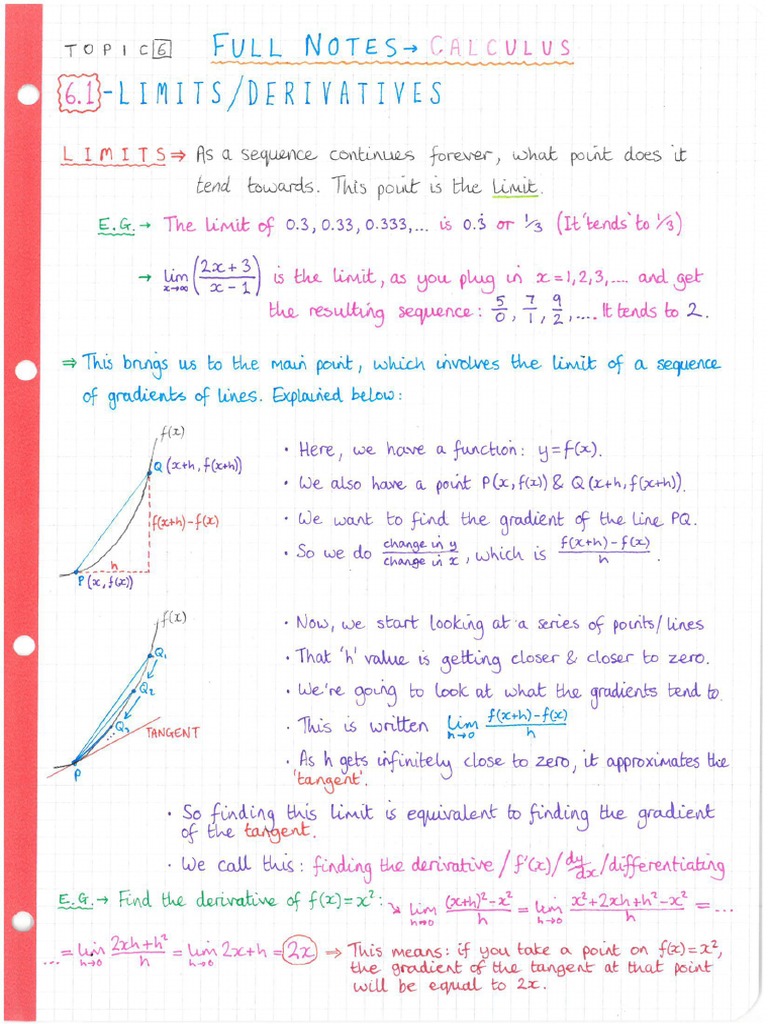 TOPIC 6 FULL NOTES → CALCULUS
6.1 - LIMITS/DERIVATIVES
LIMITS ⇒ As a sequence continues forever, what point does it
tend towards. This point is the limit.
E.G. → The limit of 0.3, 0.33, 0.333,... is 0.3̇ or 1/3 (It 'tends' to 1/3)
→ lim x→∞ ((2x+3)/(x-1)) is the limit, as you plug in x=1,2,3,.... and get
the resulting sequence: 5/0, 7/1, 9/2, .... It tends to 2.
⇒ This brings us to the main point, which involves the limit of a sequence
of gradients of lines. Explained below:
f(x)
Q (x+h, f(x+h))
f(x+h)-f(x)
h
P (x, f(x))
• Here, we have a function: y=f(x).
• We also have a point P(x, f(x)) & Q(x+h, f(x+h)).
• We want to find the gradient of the line PQ.
• So we do change in y / change in x, which is (f(x+h)-f(x))/h.
f(x)
Q₁
Q₂
Q₃
...
TANGENT
P
• Now, we start looking at a series of points/lines
• That 'h' value is getting closer & closer to zero.
• We're going to look at what the gradients tend to.
• This is written lim h→0 (f(x+h)-f(x))/h
• As h gets infinitely close to zero, it approximates the
'tangent'.
• So finding this limit is equivalent to finding the gradient
of the tangent.
• We call this: finding the derivative / f'(x) / dy/dx / differentiating
E.G. → Find the derivative of f(x)=x²: ↘ lim h→0 ((x+h)²-x²)/h = lim h→0 (x²+2xh+h²-x²)/h = ...
... = lim h→0 (2xh+h²)/h = lim h→0 2x+h = 2x ⇒ This means: if you take a point on f(x)=x²,
the gradient of the tangent at that point
will be equal to 2x.